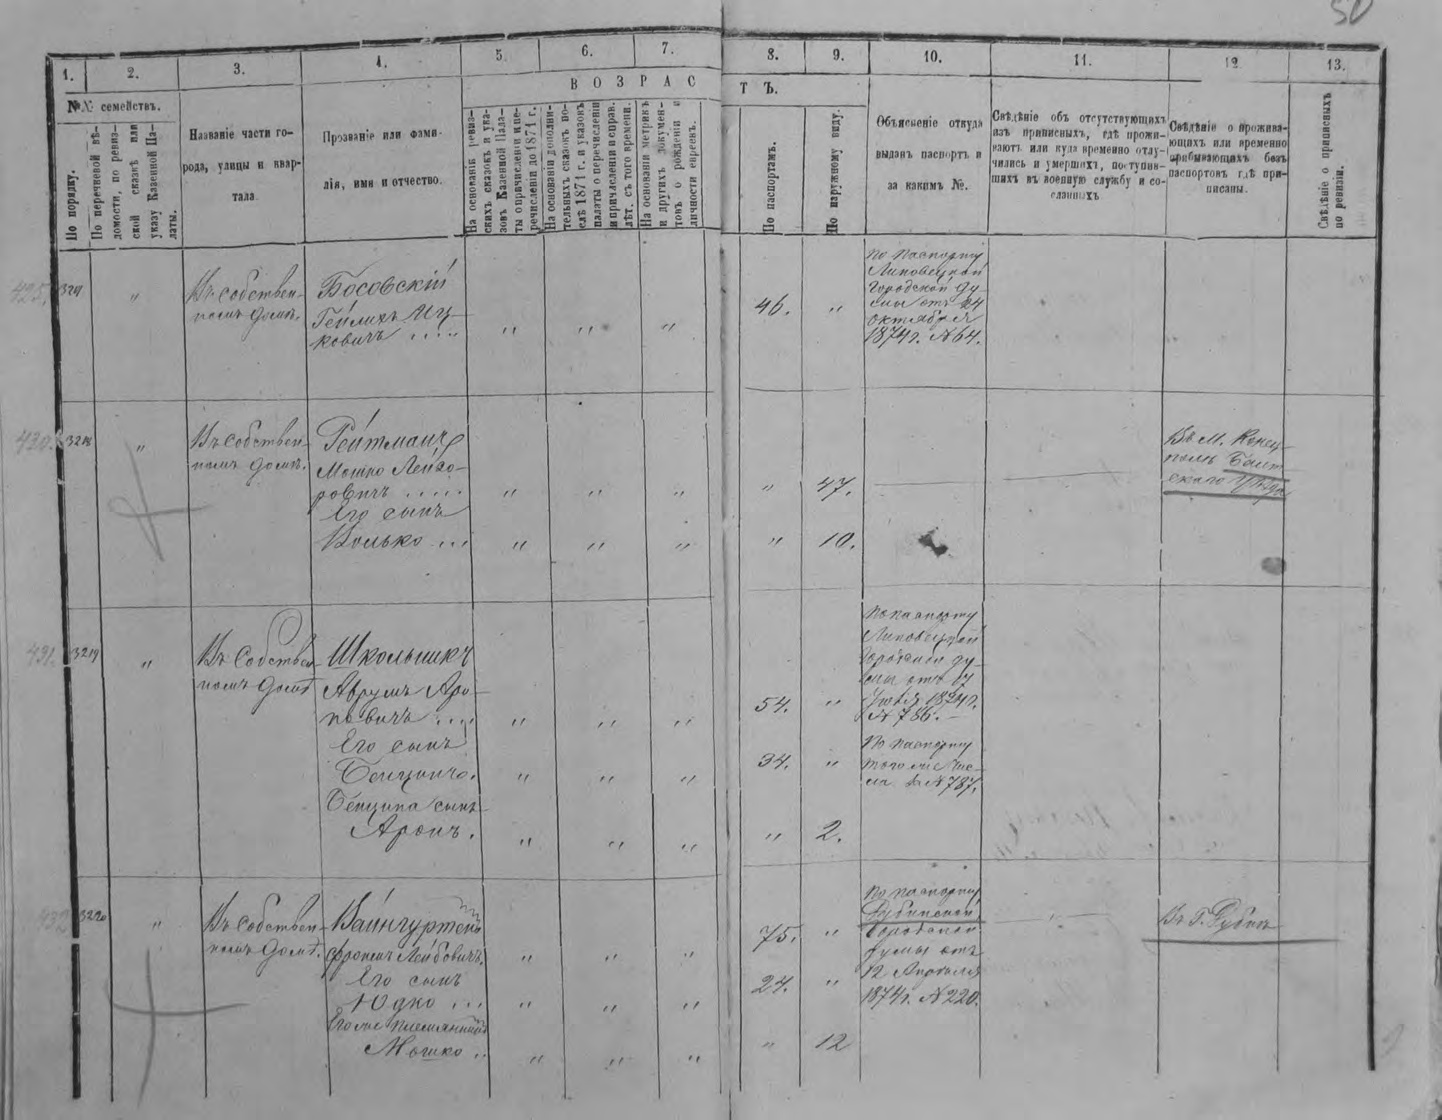 50
1.
2.
3.
4.
5.
6.
7.
8.
9.
10.
11.
12.
13.
ВОЗРАС
ТЪ.
№№ семействъ.
По порядку.
По перечневой вѣ-
домости, по ревиз-
ской сказкѣ или
указу Казенной Па-
латы.
Названіе части го-
рода, улицы и квар-
тала
Прозваніе или фами-
лія, имя и отчество.
На основаніи ревиз-
скихъ сказокъ и ука-
зовъ Казенной Пала-
ты о причисленіи и пе-
речисленіи до 1871 г.
На основаніи дополни-
тельныхъ сказокъ по-
слѣ 1871 г. и указовъ
палаты о перечисленіи
и причисленіи и справ.
лѣт. съ того времени.
На основаніи метрикъ
и другихъ докумен-
товъ о рожденіи и
личности евреевъ.
По паспортамъ.
По наружному виду.
Объясненіе откуда
выданъ паспортъ и
за какимъ №.
Свѣдѣніе объ отсутствующихъ
изъ приписныхъ, гдѣ прожи-
ваютъ или куда временно отлу-
чились и умершихъ, поступив-
шихъ въ военную службу и со-
сланныхъ
Свѣдѣніе о прожива-
ющихъ или временно
прибывающихъ безъ
паспортовъ гдѣ при-
писаны.
Свѣдѣніе о приписныхъ
по ревизіи.
3217
"
Въ собствен-
номъ домѣ.
Босовскій
Гейлихъ Иц-
ковичъ .....
" " "
46. "
По паспорту
Липовецкой
городской ду-
мы отъ 24
октября
1874 г. №64.
430. 3218
"
Въ собствен-
номъ домѣ.
Гейтманъ
Мошко Лейзо-
ровичъ .....
" " "
" 47.
Въ М. Конец-
полѣ Балт-
скаго уѣзда
Его сынъ
Волько ...
" " "
" 10.
431. 3219
"
Въ собствен-
номъ домѣ
Школьникъ
Аврумъ Аро-
новичъ ....
" " "
54. "
По паспорту
Липовецкой
городской ду-
мы отъ
1874 г.
№ 786.
Его сынъ
Бенціонъ.
" " "
34. "
По паспорту
того же чис-
ла №787.
Бенціона сынъ
Аронъ.
" " "
" 2.
432 3220
"
Въ собствен-
номъ домѣ.
Вайнгуртенъ
Фроимъ Лейбовичъ.
" " "
75. "
По паспорту
Дубинской
городской
думы отъ
12 Апрѣля
1874 г. №220.
Въ г. Дубнѣ
Его сынъ
Юдко ...
" " "
24. "
Его же племянникъ
Мошко ..
" " "
" 12